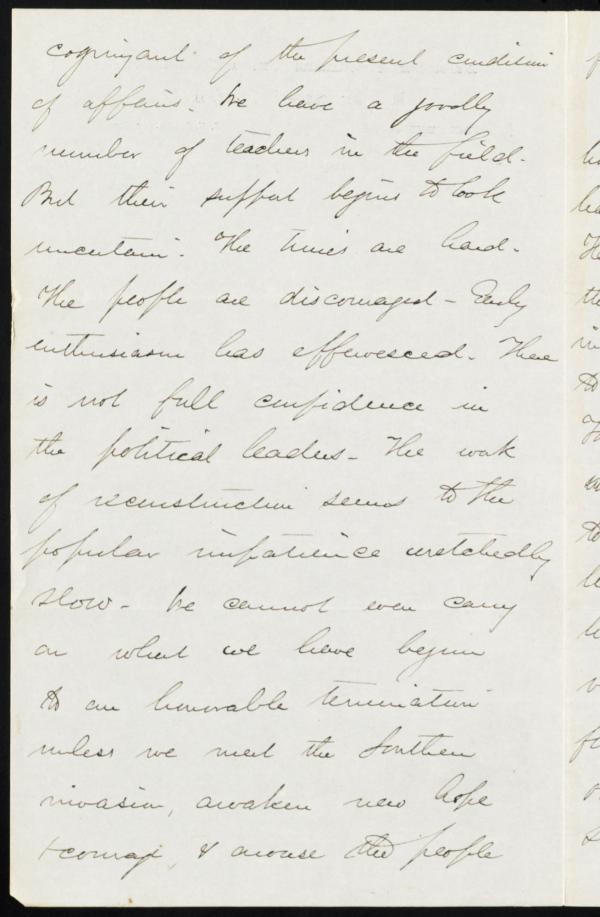 cognizant of the present condition
of affairs. We have a goodly
number of teachers in the field.
But their support begins to look
uncertain. The times are hard.
The people are discouraged - Early
enthusiasm has effervesced. There
is not full confidence in
the political leaders - The work
of reconstruction seems to the
popular impatience wretchedly
slow - We cannot even carry
on what we have begun
to an honorable termination
unless we meet the Southern
invasion, awaken new hope
& courage, & arouse the people